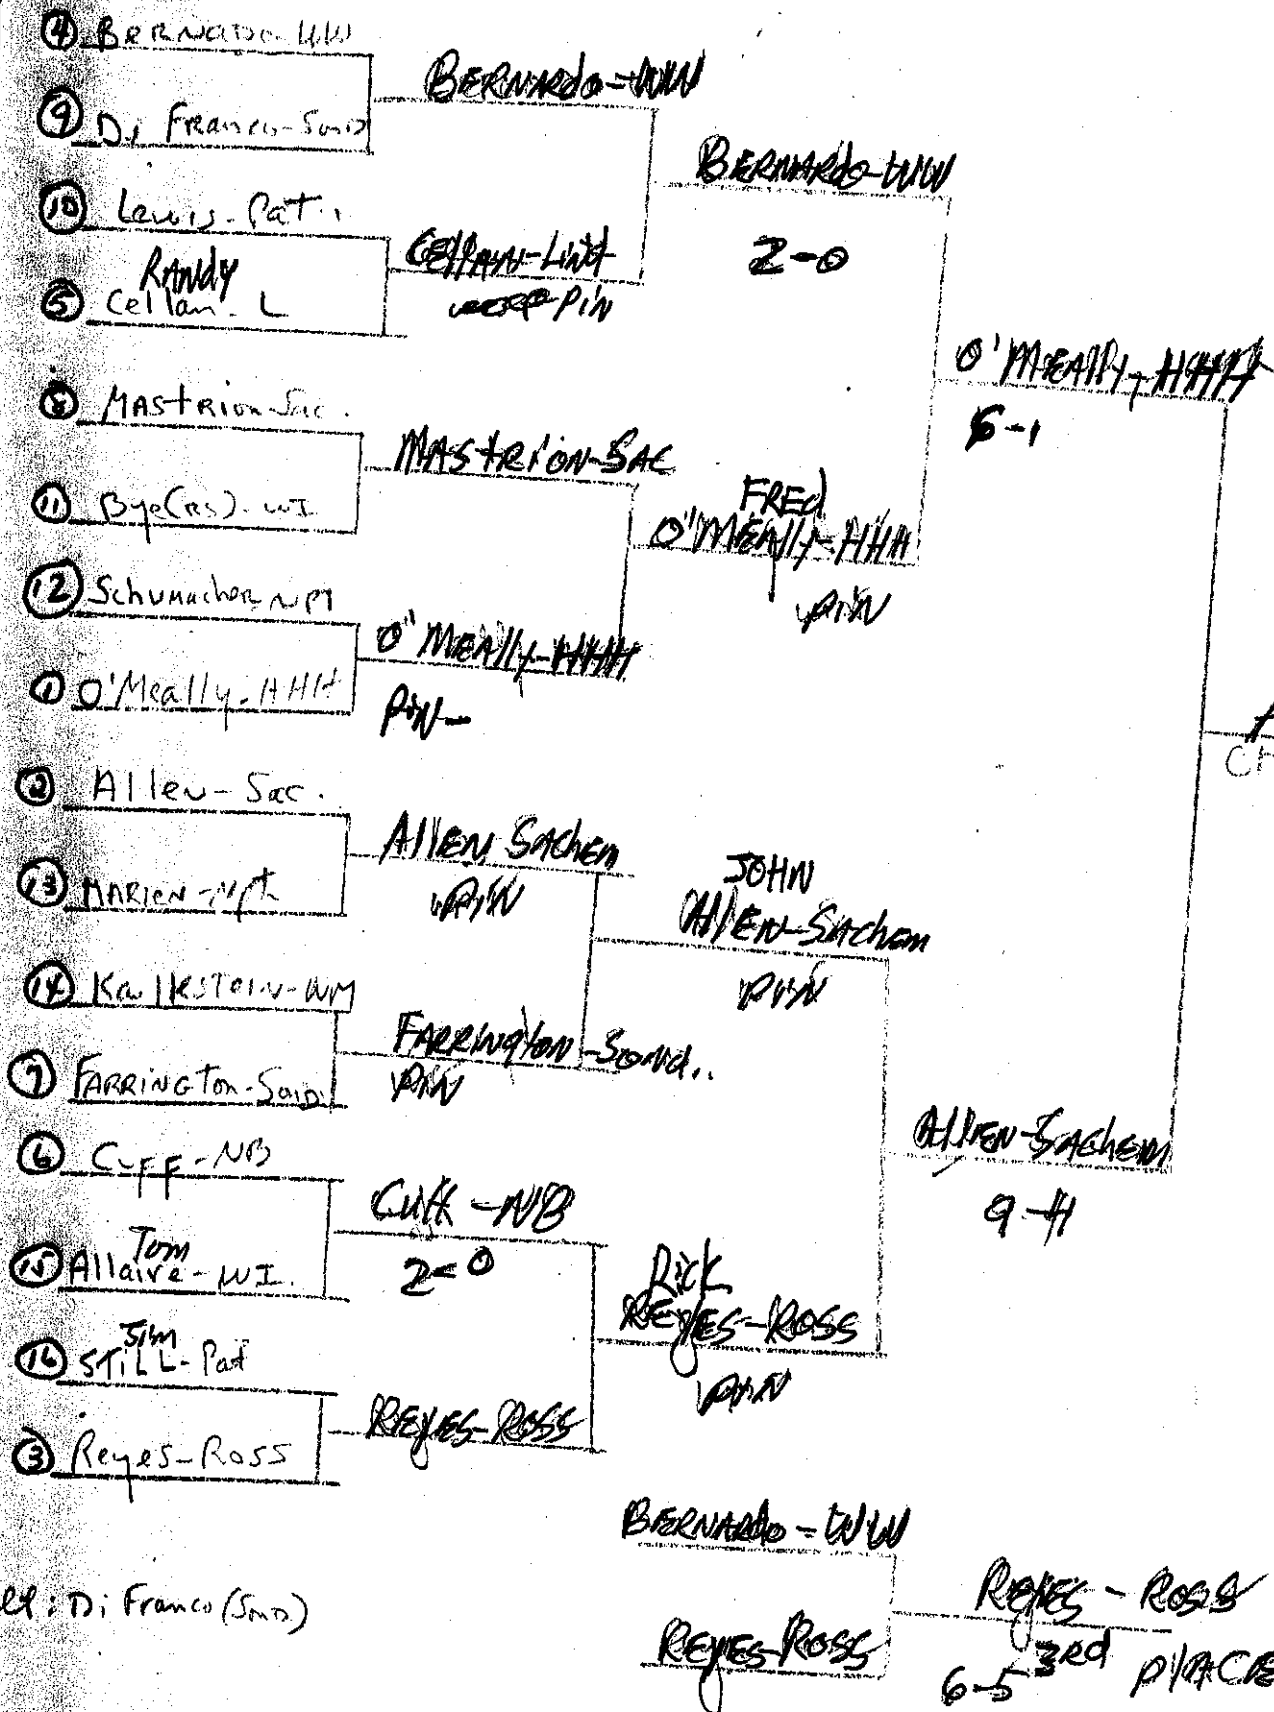 ④ Bernardo-WW
⑨ Di Franco-SmD
⑩ Lewis-Pat.
RANdy
⑤ Cellan-L
⑧ MAStRion-Sac.
⑪ Bye(RS)-WI
⑫ Schumacher NPT
① O'Meally-HHH
② Allen-Sac.
⑬ MARIEN-Npt
⑭ Kallestein-WM
⑦ FARRINGTon-SmD
⑥ Cuff-NB
Tom
⑮ Allaire-WI.
Jim
⑯ STILL-Pat
③ Reyes-Ross
BERNARdo-WW
CEllAN-Lind
PiN
MAStRiON-SAC
O'MEAlly-HHH
PiN-
AllEN SAChEm
PiN
FARRiNgtoN-Smd..
PiN
CUff-NB
2-0
REyES-ROSS
BERNARdo-WW
2-0
FREd
O'MEAlly-HHH
PiN
JOHN
AllEN-SAChem
PiN
RiCK
REyES-ROSS
PiN
O'MEAlly-HHH
6-1
AllEN-SAChEm
9-4
CH
BERNARdo-WW
REyES-ROSS
REyES-ROSS
6-5 3Rd PlACE
Di Franco (SmD)